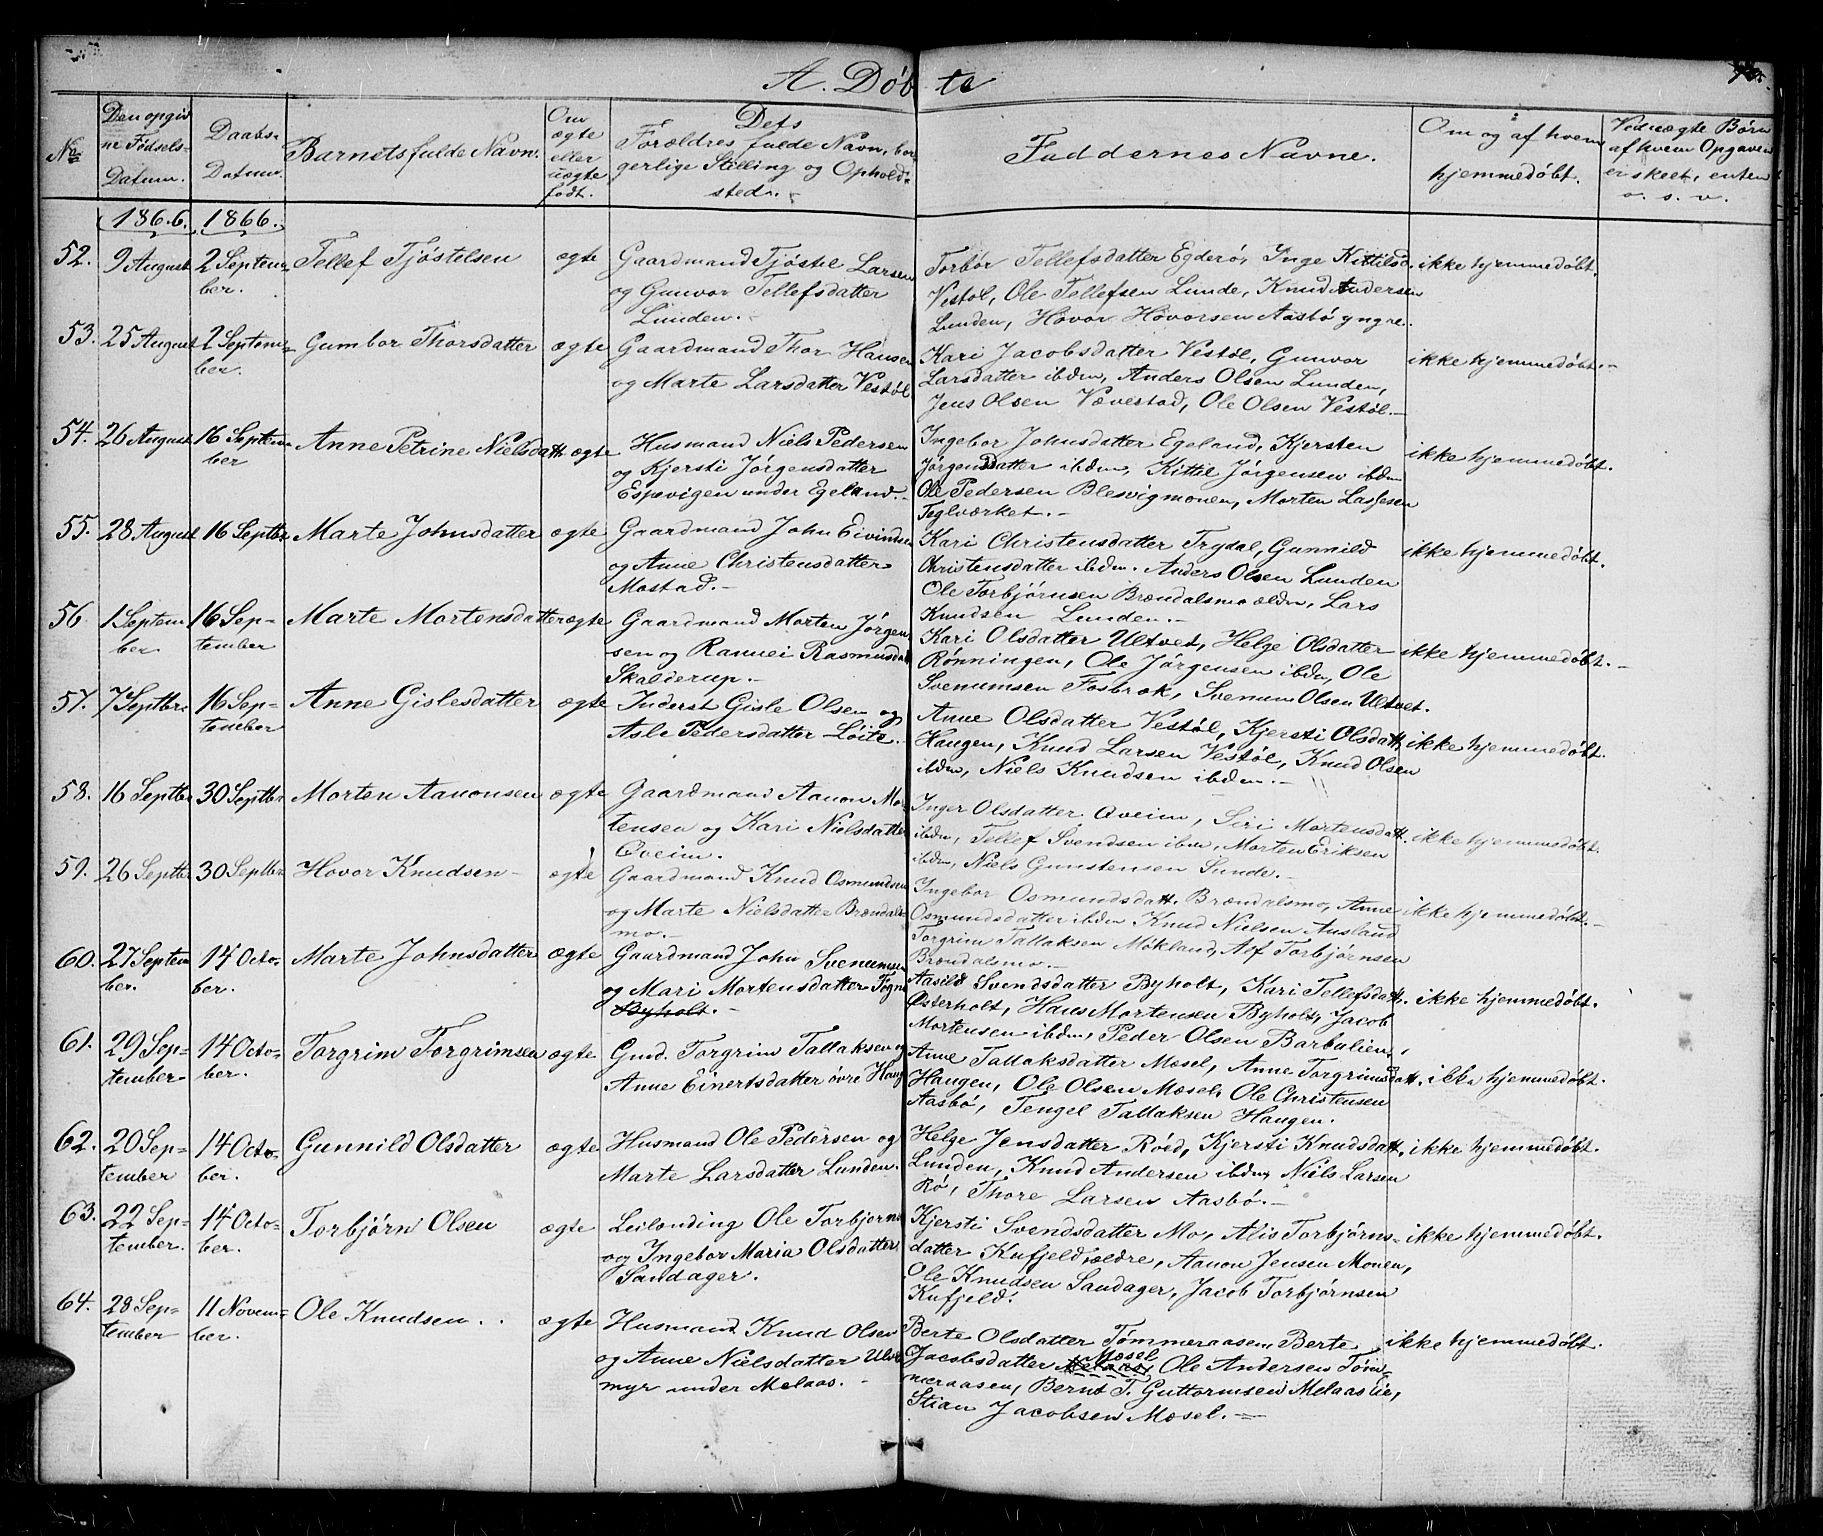 A. Døbte
No
Den opgivne Fødsels-Datum.
Daabs-Datum.
Barnets fulde Navn.
Om ægte eller uægte født.
Dets Forældres fulde Navn, borgerlige Stilling og Opholdsted.
Faddernes Navne.
Om og af hvem hjemmedøbt.
Ved uægte Børn af hvem Opgaven er skeet, enten o. s. v.
1866. 1866.
52. 9 August 2 September. Tellef Tjøstelsen ægte
Gaardmand Tjøstel Larsen
og Gunvor Tellefsdatter
Lunden.
Torbør Tellefsdatter Egderø, Inge Kittilsd.
Vestøl, Ole Tellefsen Lunde, Knud Andersen
Lunden, Hovor Hovorsen Aasbø yngre.
ikke hjemmedøbt.
53. 25 August 2 September. Gumbor Thorsdatter ægte
Gaardmand Thor Hansen
og Marte Larsdatter Vestøl
Kari Jacobsdatter Vestøl, Gunvor
Larsdatter ibdm, Anders Olsen Lunden,
Jens Olsen Vævestad, Ole Olsen Vestøl.
ikke hjemmedøbt.
54. 26 August 16 September Anne Petrine Nielsdatt. ægte
Husmand Niels Pedersen
og Kjersti Jørgensdatter
Espevigen under Egeland.
Ingebor Johnsdatter Egeland, Kjersten
Jørgensdatter ibdm, Kittil Jørgensen ibdm
Ole Pedersen Blesvigmonen, Morten Lassesen
Teglværket.
ikke hjemmedøbt.
55. 28 August 16 Septbr. Marte Johnsdatter ægte
Gaardmand John Eivindsen
og Anne Christensdatter
Mostad.
Kari Christensdatter Trydal, Gunnild
Christensdatter ibdm. Anders Olsen Lunden
Ole Torbjørnsen Brændalsmo ældre, Lars
Knudsen Lunden.
ikke hjemmedøbt.
56. 1 September 16 September Marte Mortensdatter ægte
Gaardmand Morten Jørgen
sen og Rannei Rasmusdatt.
Skalderup.
Kari Olsdatter Ultvet, Helge Olsdatter
Rønningen, Ole Jørgensen ibdm, Ole
Svenumsen Fosbrok, Svenum Olsen Ultvet.
ikke hjemmedøbt.
57. 7 Septbr. 16 September Anne Gislesdatter ægte
Inderst Gisle Olsen og
Asle Pedersdatter Løite.
Anne Olsdatter Vestøl, Kjersti Olsdatt.
Haugen, Knud Larsen Vestøl, Knud Olsen
ibdm, Niels Knudsen ibdm.
ikke hjemmedøbt.
58. 16 Septbr. 30 Septbr. Morten Aanonsen ægte
Gaardmand Aanon Mor-
tensen og Kari Nielsdatter
Oveim.
Inger Olsdatter Oveim, Siri Mortensdatt.
ibdm, Tellef Svendsen ibdm, Morten Eriksen
ibdm, Niels Gunstensen Sunde.
ikke hjemmedøbt.
59. 26 Septbr. 30 Septbr. Hovor Knudsen ægte
Gaardmand Knud Osmundsen
og Marte Nielsdatter Brændals-
mo.
Ingebor Osmundsdatt. Brændalsmo, Anne
Osmundsdatter ibdm, Knud Nielsen Ausland
Torgrim Tallaksen Mokland, Asf Torbjørnsen
Brændalsmo.
ikke hjemmedøbt.
60. 27 September. 14 October. Marte Johnsdatter ægte
Gaardmand John Svenumsen
og Mari Mortensdatter Togne
Byholt.
Aasild Svendsdatter Byholt, Kari Tellefsdatt.
Østerholt, Hans Mortensen Byholt, Jacob
Mortensen ibdm, Peder Olsen Barbulien.
ikke hjemmedøbt.
61. 29 September 14 October. Torgrim Torgrimsen ægte
Gmd. Torgrim Tallaksen og
Anne Einertsdatter øvre Haug
Anne Tallaksdatter Mosel, Anne Torgrimsdatt.
Haugen, Ole Olsen Mæsel, Ole Christensen
Aasbø, Tengel Tallaksen Haugen.
ikke hjemmedøbt.
62. 20 September 14 October. Gunnild Olsdatter ægte
Husmand Ole Pedersen og
Marte Larsdatter Lunden.
Helge Jensdatter Røed, Kjersti Knudsdatt.
Lunden, Knud Andersen ibdm, Niels Larsen
Rø, Thore Larsen Aasbø.
ikke hjemmedøbt.
63. 22 September. 14 October. Torbjørn Olsen ægte
Leilænding Ole Torbjørns
og Ingebor Maria Olsdatter
Sandager.
Kjersti Svendsdatter Mo, Alis Torbjørns-
datter Kufjeld ældre, Aanon Jensen Monen,
Ole Knudsen Sandager, Jacob Torbjørnsen
Kufjeld.
ikke hjemmedøbt.
64. 28 September 11 November. Ole Knudsen ægte
Husmand Knud Olsen
og Anne Nielsdatter Ulve
myr under Melaas.
Berte Olsdatter Tømmeraasen, Berte
Jacobsdatter Melaas, Mæsel Ole Andersen Tøm-
meraasen, Bernt T. Guttormsen Melaaslie,
Stian Jacobsen Mæsel.
ikke hjemmedøbt.